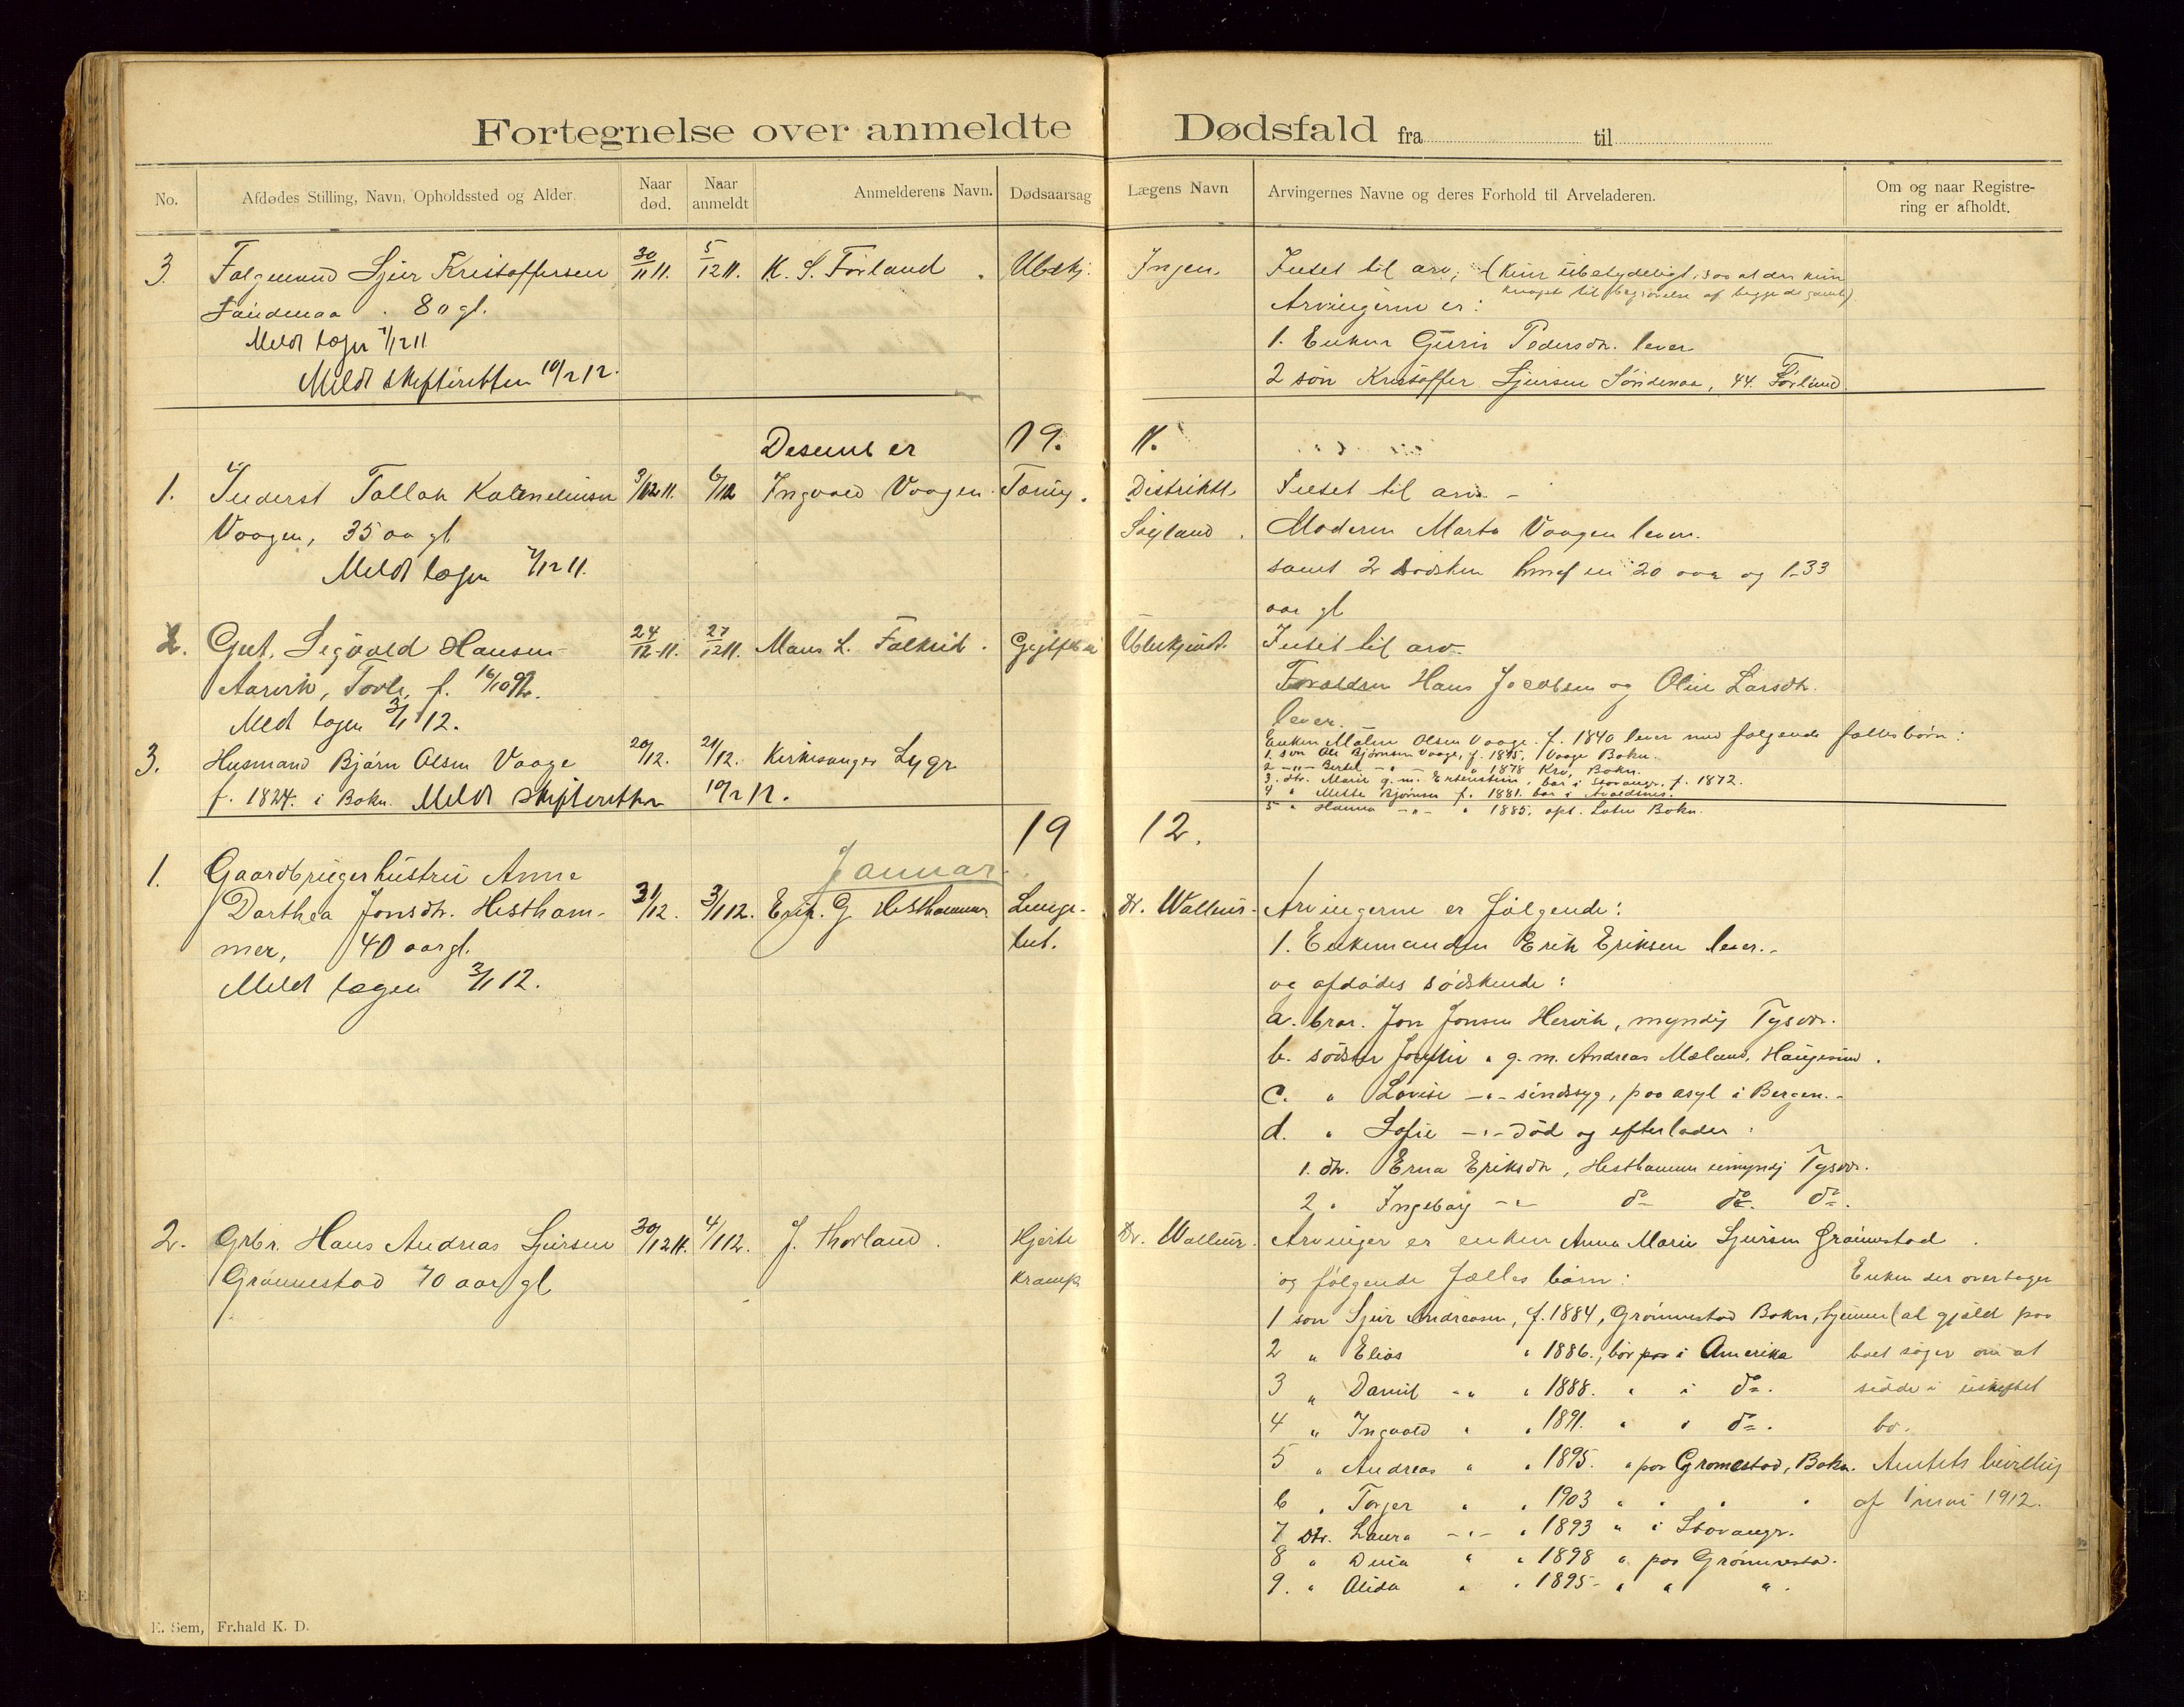 Fortegnelse over anmeldte Dødsfald fra til
No. Afdødes Stilling, Navn, Opholdssted og Alder. Naar død. Naar anmeldt Anmelderens Navn. Dødsaarsag Lægens Navn Arvingernes Navne og deres Forhold til Arveladeren. Om og naar Registrering er afholdt.
3. Sjur Kristoffersen 30/11 11. 5/12 11. K. S. Førland. Ubekj. Ingen. Intet til arv, (kun ubetydeligt, saa at der kun
knapt til begravelse af begge de gamle).
80 gl. Arvingerne er:
Meldt lægen 7/12 11 1. Enken Guri Pedersdtr. lever
Meldt skifteretten 10/2 12. 2 søn Kristoffer Sjursen Søndenaa, 44. Førland.
Desember 19. 11.
1. Inderst Tallak 3/12 11. 6/12 Ingvald Vaagen. Tæring. Distriktsl. Intet til arv -
Vaagen, 35 aa gl Moderen Marta Vaagen lever.
Meldt lægen 7/12 11. samt 2 sødsken hvoraf en 20 aar og 1-33
aar gl
2. Gut, Sigvald Hansen 24/12-11. 27/12 11. Mans L. Falkeid. Ubekjendt. Intet til arv.
Aarvik, f. 16/10 Forældren Hans Jacobsen og Oline Larsdtr.
Meldt lægen 3/1 12. lever.
3. Husmand Bjørn Olsen Vaage 20/12. 21/12. Kirkesanger Lygre Enken Malene Olsen Vaage f. 1840 lever med følgende fælles børn:
f. 1824. i Bokn. Meldt skifteretten 10/2 12. 1. søn Ole Bjørnsen Vaage, f. 1875, Vaage Bokn.
2 -"- Bertel -"- " 1878 Bokn.
3. dtr. Marie g. m. bor i Stavanger, f. 1872.
4 " Mette Bjørnsen f. 1881. bor i Avaldsnes.
5 " Hanna -"- " 1885. Bokn.
19 12.
Januar.
1. Gaardbrugerhustru Anne
Dorthea Jonsdtr. Hestham- 31/12. 3/1 12. Erik. G Hesthammer Lunge- Dr. Wallum. Arvingerne er følgende:
mer, 40 aar gl. bet. 1. Enkemanden Erik Eriksen lever.-
Meldt lægen 3/1 12. og afdødes sødskende:
a. bror. Jon Jonsen Hervik, myndig Tysvær.
b. sødster g. m. Andreas Mæland, Haugesund.
c. " Lovise -"- sindssyg, paa asyl i Bergen.-
d. " Sofie -"- død og efterlader:
1. dtr. Erna Eriksdtr, Hesthammer umyndig Tysvær.
2 " Ingeborg -"- do do. do.
2. Grbr. Hans Andreas Sjursen 30/12 11. 4/1 12. J. Thorland. Hjerte Dr. Wallum. Arvinger er enken Anna Marie Sjursen Grønnestad.
Grønnestad 70 aar gl krampe og følgende fælles børn: Enken der overtager
1 søn Sjur Andreasen, f. 1884, Grønnestad Bokn, hjemme (al gjæld paa
2 " Elias " 1886., bor paa i Amerika boet søger om at
3 " Daniel -" " 1888. " i do. sidde i uskiftet
4 " Ingvald " " 1891. " " do. bo.
5 " Andreas " " 1895. " paa Grønnestad, Bokn. Amtets bevilling
6 " Torger " " 1903 " " " " af 1 mai 1912.
7 Dtr. Laura -"- " 1893 " i Stavanger.
8 " Dina " " 1898 " paa Grønnestad.
9. " Alida " " 1895- " " ".
E. Sem, Fr.hald K. D.